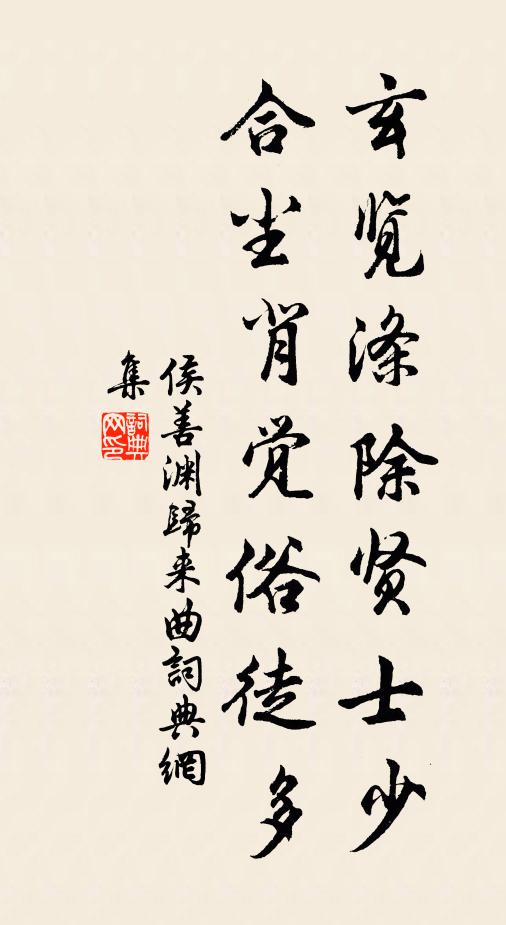 玄览涤除贤士少
合尘背觉俗徒多
侯善渊歸来曲詞典網
集
詞典網印